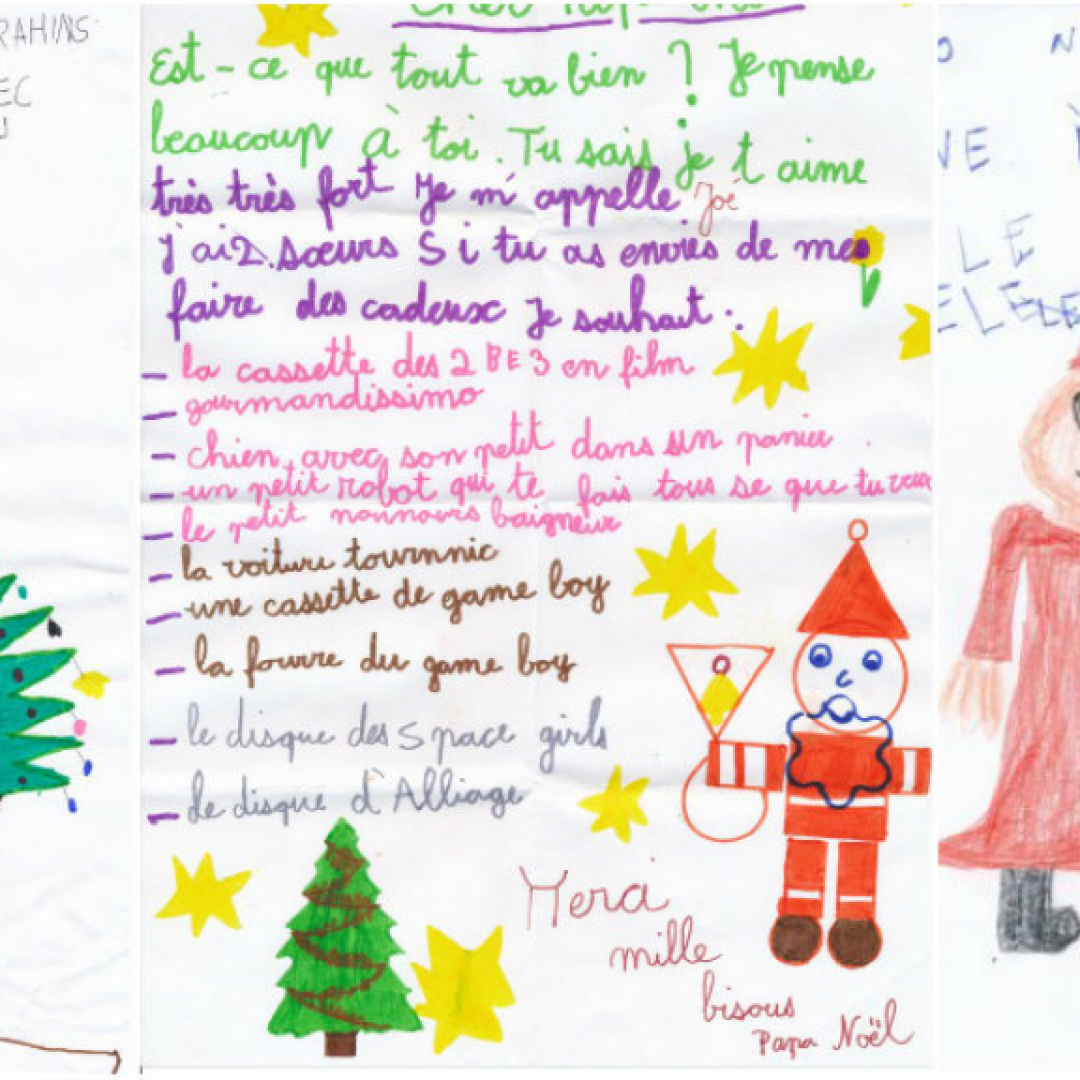 RAHINS
EC
Cher Papa Noël
Est-ce que tout va bien ? Je pense
beaucoup à toi. Tu sais je t aime
très très fort Je m'appelle Joé
J'ai 2 sœurs Si tu as envies de mes
faire des cadeux Je souhait :
- la cassette des 2 BE 3 en film
- gourmandissimo
- chien avec son petit dans un panier .
- un petit robot qui te fais tous se que tu veux
- le petit nounours baigneur
- la voiture tournnic
- une cassette de game boy
- la fourre du game boy
- le disque des Space girls
- le disque d'Alliage
Mera
mille
bisous
Papa Noël
N
NE
LE
ELELE